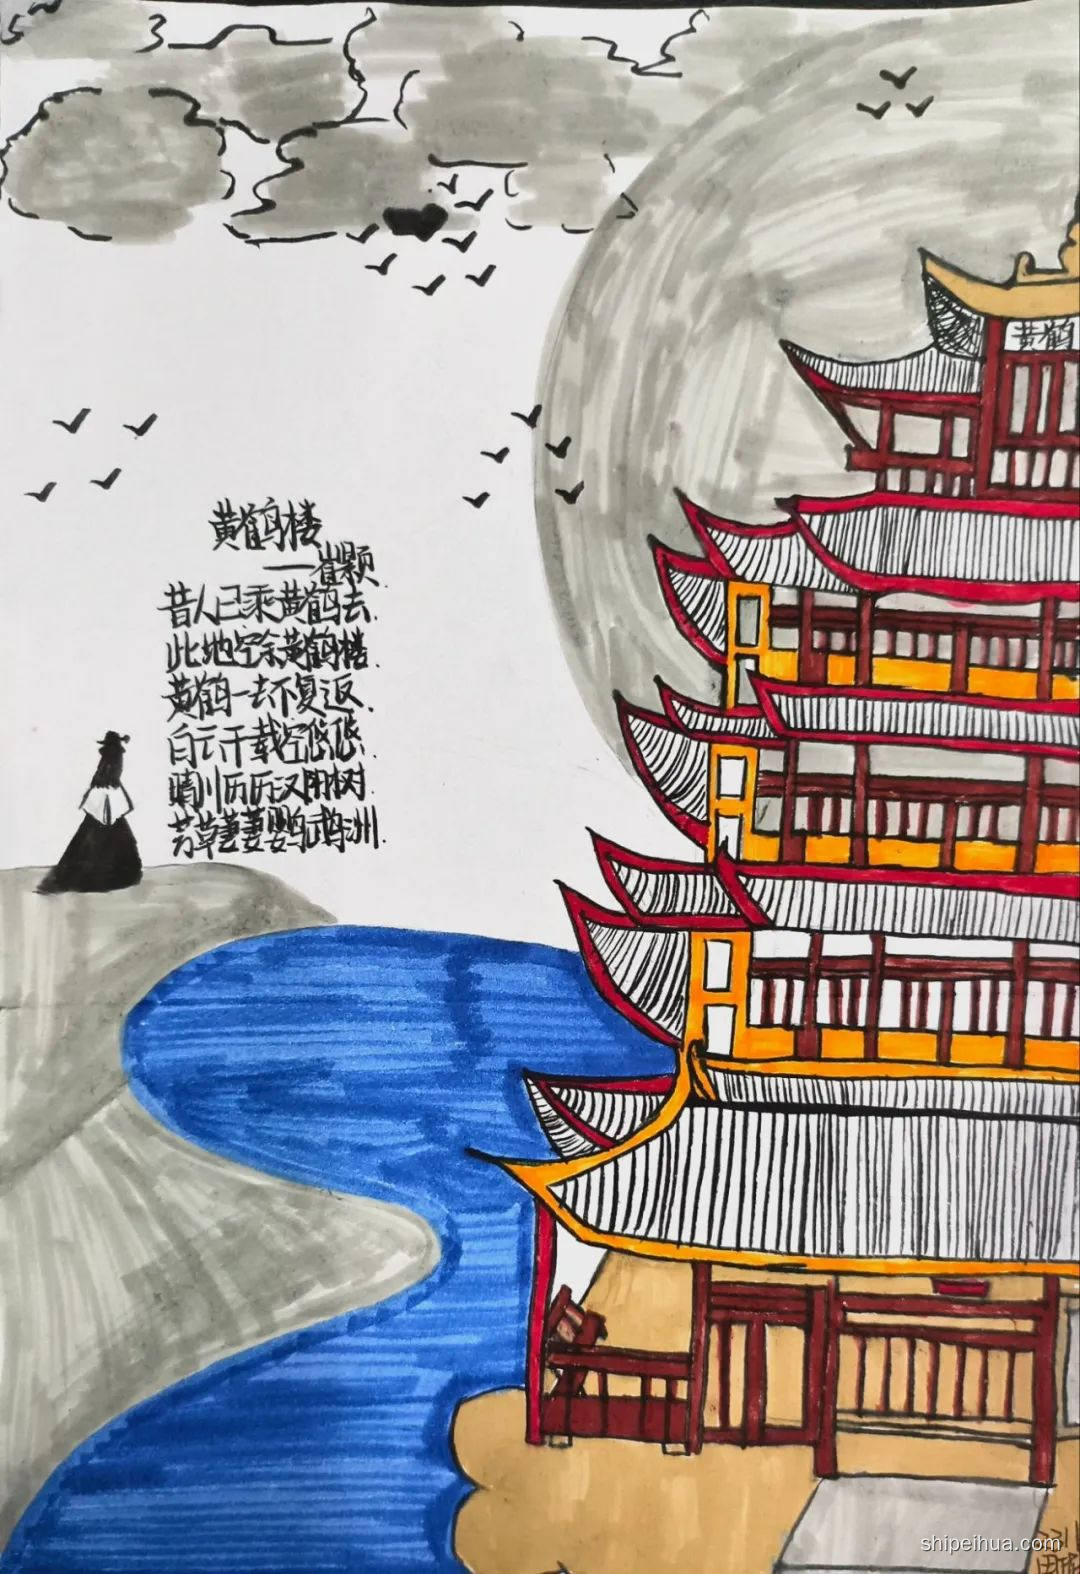 黄鹤
黄鹤楼
——崔颢
昔人已乘黄鹤去.
此地空余黄鹤楼.
黄鹤一去不复返.
白云千载空悠悠.
晴川历历汉阳树.
芳草萋萋鹦鹉洲.
shipeihua.com